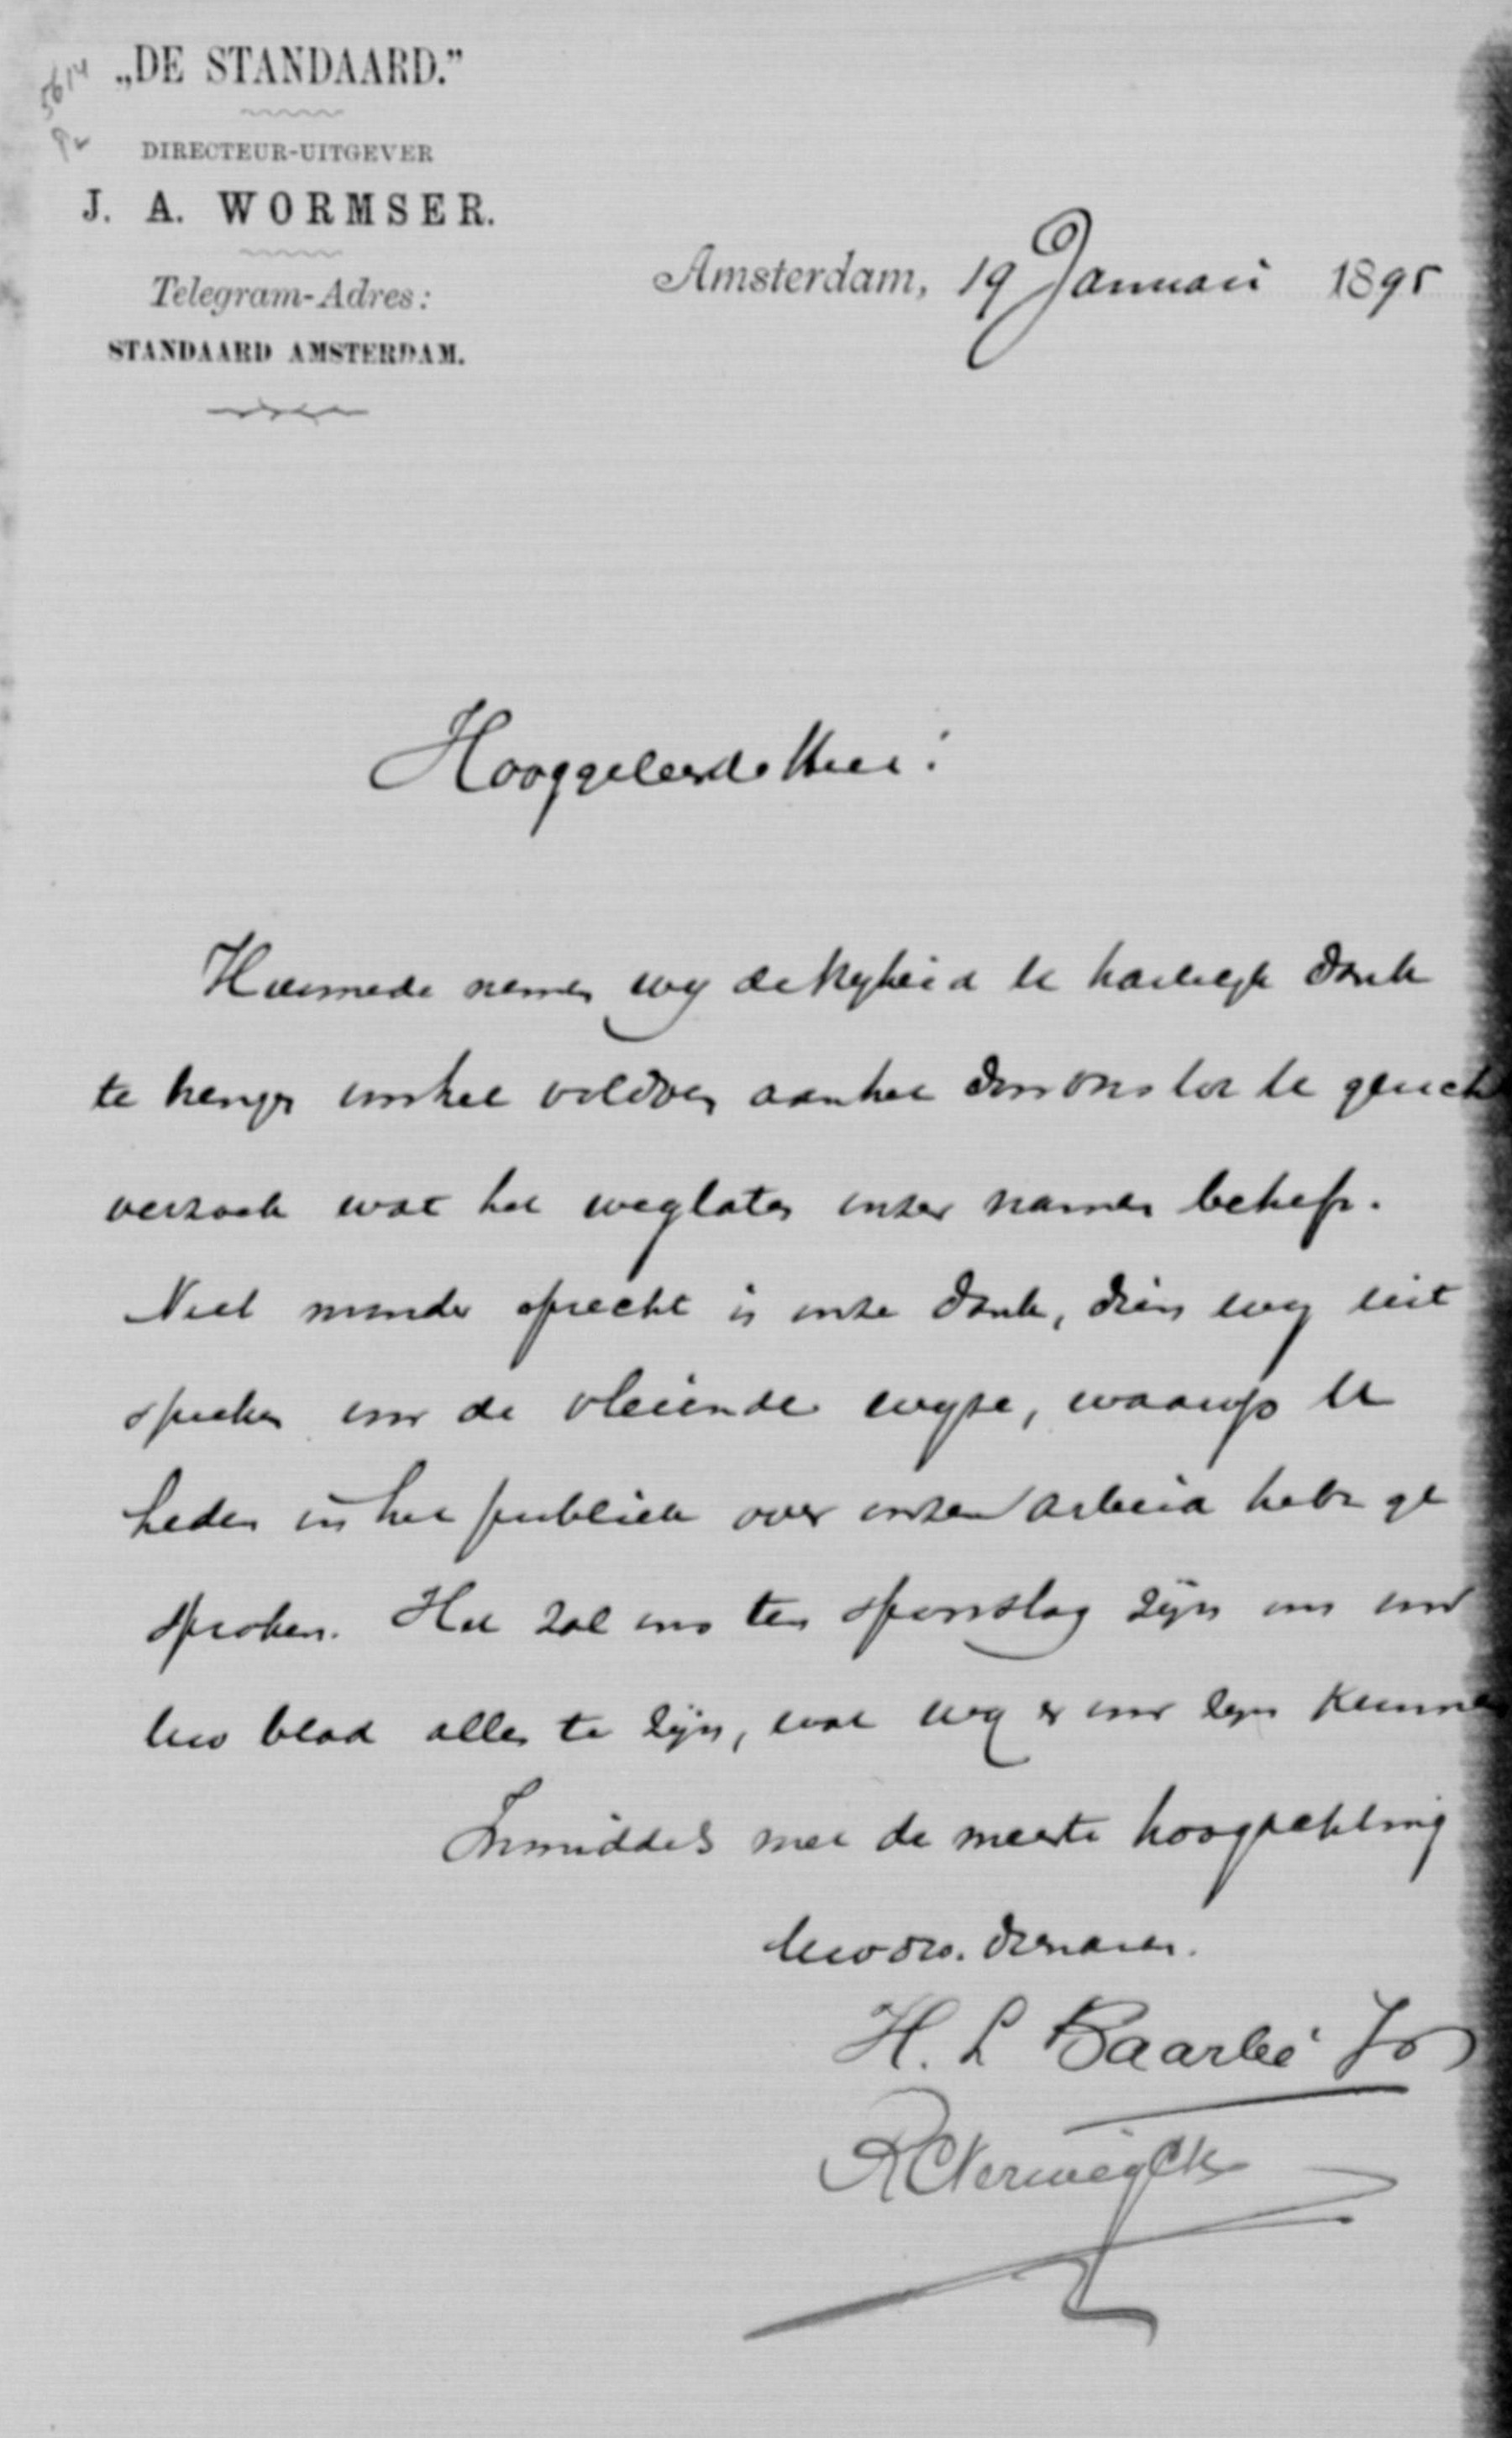 5614
„DE STANDAARD.”
DIRECTEUR-UITGEVER
J. A. WORMSER.
Telegram-Adres:
STANDAARD AMSTERDAM.
Amsterdam, 19 Januari 1895
Hooggeleerde Heer!
Hiermede nemen wy de vryheid U hartelyk dank
te brengen voor het voldoen aan het door ons tot U gericht
verzoek wat het weglaten onzer namen betreft.
Niet minder oprecht is onze dank, dien wy uit
spreken voor de vleiende wyze, waarop U
heden in het publiek over onzen arbeid hebt ge
sproken. Het zal ons ten spoorslag zijn om voor
Uw blad alles te zijn, wat wy er voor zyn kunnen
Inmiddels met de meeste hoogachting
Uwe dw. dienaren.
H. L Baarbé Jr